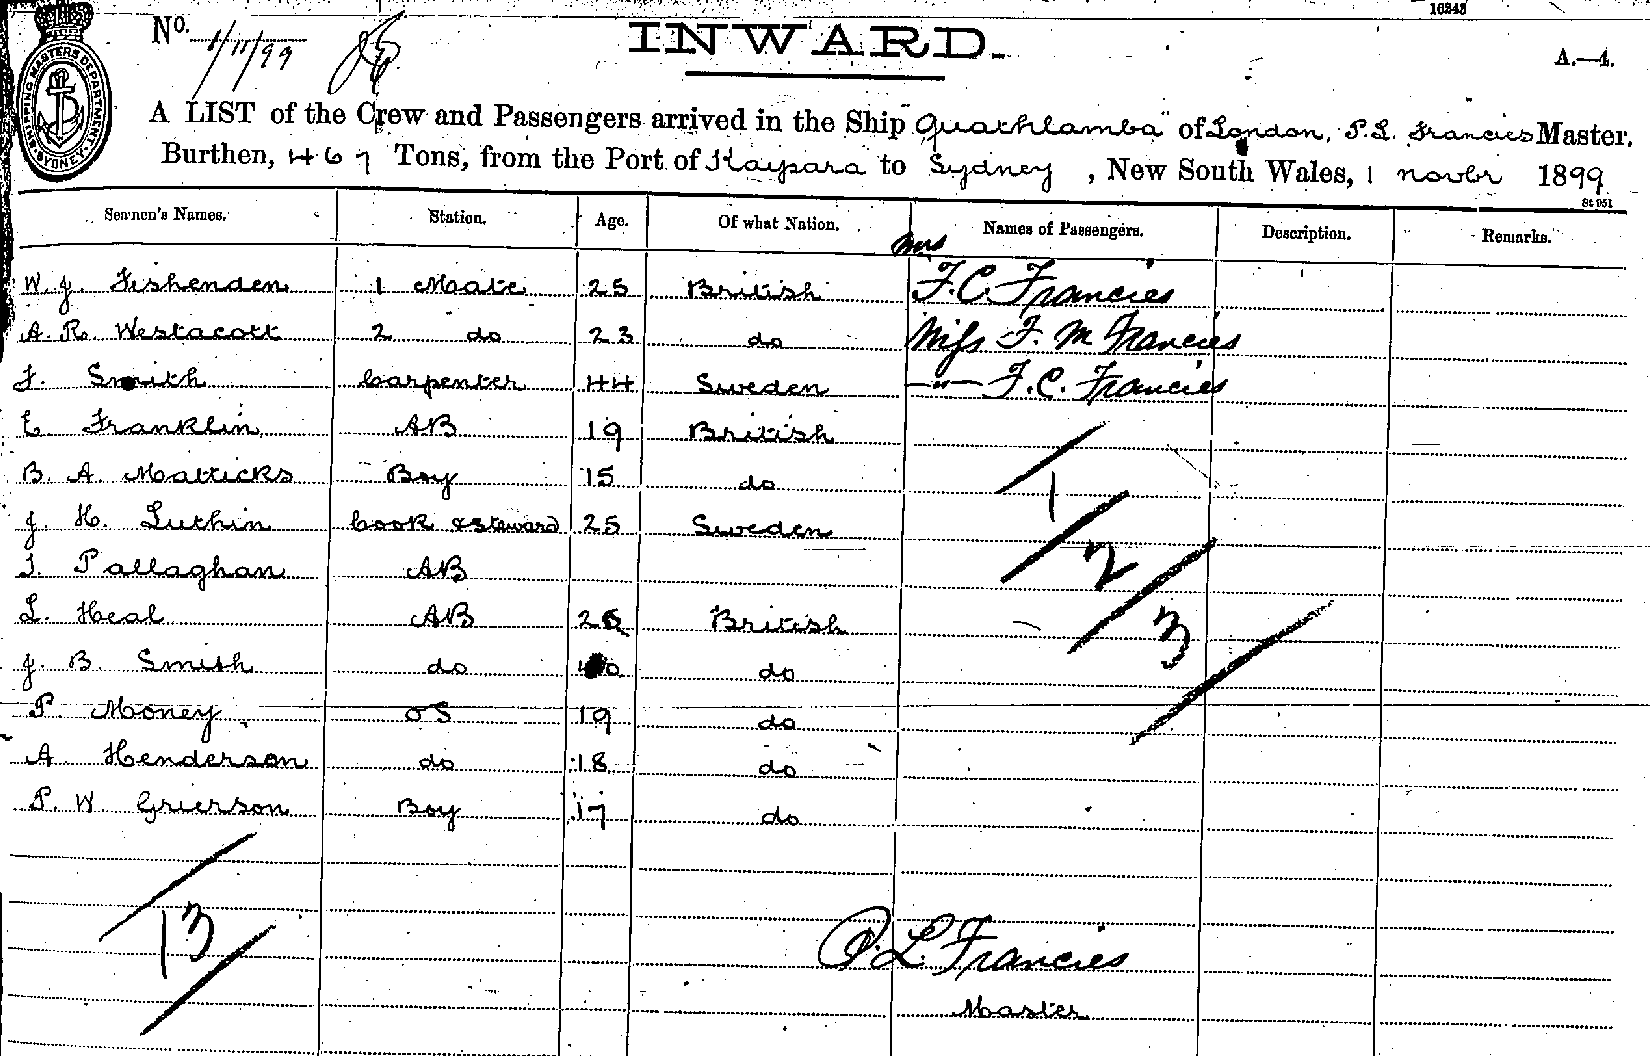 16243
No. 1/11/99
INWARD.
A.—4.
SHIPPING MASTERS DEPARTMENT SYDNEY
A LIST of the Crew and Passengers arrived in the Ship "Quathlamba" of London, P.L. Francies Master,
Burthen, 467 Tons, from the Port of Kaipara to Sydney, New South Wales, 1 novbr 1899
St 951
Seamen's Names. Station. Age. Of what Nation. Names of Passengers. Description. Remarks.
W. J. Fishenden 1 Mate 25 British Mrs F. C. Francies
A. R. Westacott 2 do 23 do Miss F. M Francies
F. Smith Carpenter 44 Sweden —"— F. C. Francies
E. Franklin AB 19 British
B. A. Matticks Boy 15 do
J. H. Luthin Cook & Steward 25 Sweden
T. Pallaghan AB
L. Heal AB 26 British
J. B. Smith do do
P. Money OS 19 do
A Henderson do 18 do
P. W Grierson Boy 17 do
1/2/3
13
P. L Francies
Master